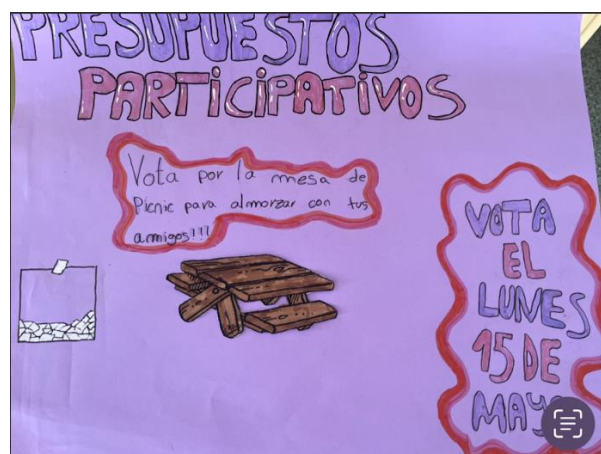 PRESUPUESTOS
PARTICIPATIVOS
Vota por la mesa de
Picnic para almorzar con tus
amigos!!!
VOTA
EL
LUNES
15 DE
MAYO